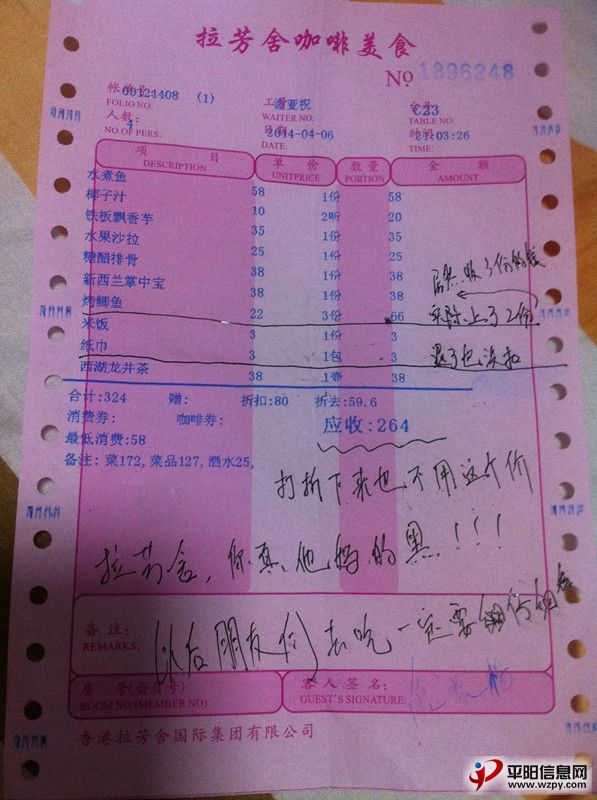 拉芳舍咖啡美食
No 1896248
帐单号: 00121408 (1)
FOLIO NO:
WAITER NO:
台号: C23
TABLE NO:
人数: 4
NO.OF PERS:
日期: 2014-04-06
DATE:
时间: 21:03:26
TIME:
项目 单价 数量 金额
DESCRIPTION UNITPRICE PORTION AMOUNT
水煮鱼 58 1份 58
椰子汁 10 2听 20
铁板飘香芋 35 1份 35
水果沙拉 25 1份 25
糖醋排骨 38 1份 38
新西兰掌中宝 38 1份 38
烤鲫鱼 22 3份 66
米饭 3 1份 3
纸巾 3 1包 3
西湖龙井茶 38 1壶 38
居然收3份的钱
实际上了2份
退了也没扣
合计:324 赠: 折扣:80 折去:59.6
消费券: 咖啡券: 应收:264
最低消费:58
备注: 菜172,菜品127,酒水25,
打折下来也不用这个价
拉芳舍,你真他妈的黑!!!
(以后朋友们)去吃一定要
备注:
REMARKS:
房号(会员号)
ROOM NO.(MEMBER NO)
客人签名:
GUEST'S SIGNATURE:
香港拉芳舍国际集团有限公司
平阳信息网
www.wzpy.com